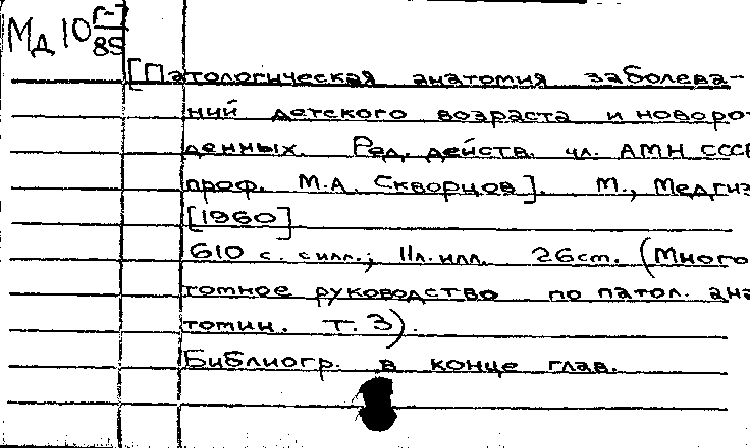 Мд 10 г-7
85
[Патологическая анатомия заболева-
ний детского возраста и новоро
денных. Ред. действ. чл. АМН СССР
проф. М.А. Скворцов]. М., Медгиз
[1960]
610 с. с илл.; 11л. илл. 26см. (Много
томное руководство по патол. ана
томии. Т. 3).
Библиогр. в конце глав.